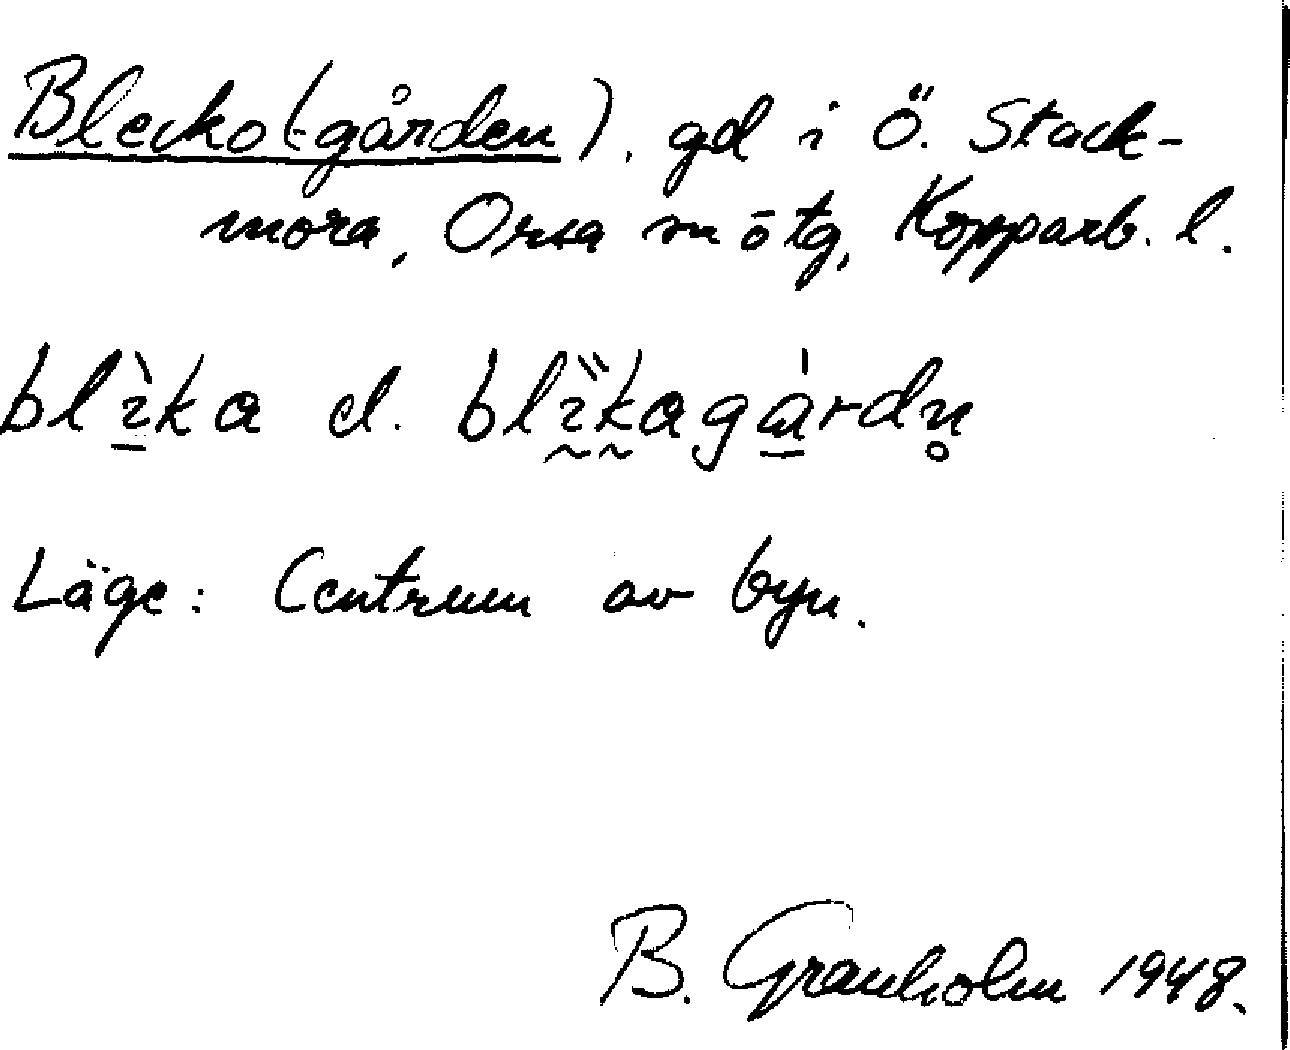 Blecko(-gården), gd i Ö. Stack-
mora, Orsa sn ö tg, Kopparb. l.
blìka el. blikagárdn̥
Läge: Centrum av byn.
B. Granholm 1948.